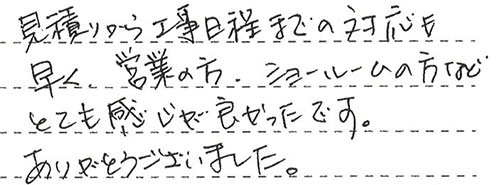 見積りから工事日程までの対応も
早く、営業の方、ショールームの方など
とても感じが良かったです。
ありがとうございました。